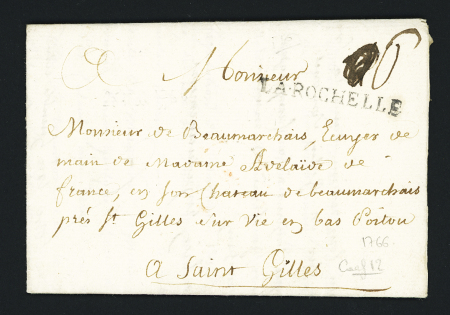 A Monsieur
LA ROCHELLE
Monsieur de Beaumarchais, Ecuyer de
main de Madame Adelaïde de
france, en son Chateau de beaumarchais
prés St Gilles sur Vie en bas Poitou
1766
A Saint Gilles